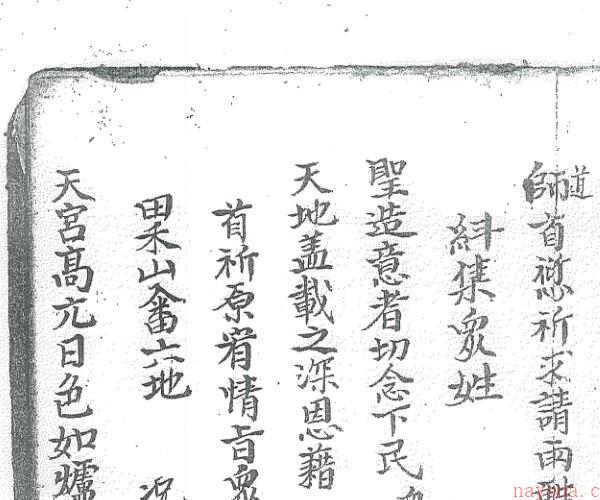 道
師首愆祈求請雨
糾集眾姓
聖造意者切念下民
天地盖載之深恩藉
首祈原宥情旨眾
田禾山畬六地
況
天宮高亢日色如爐